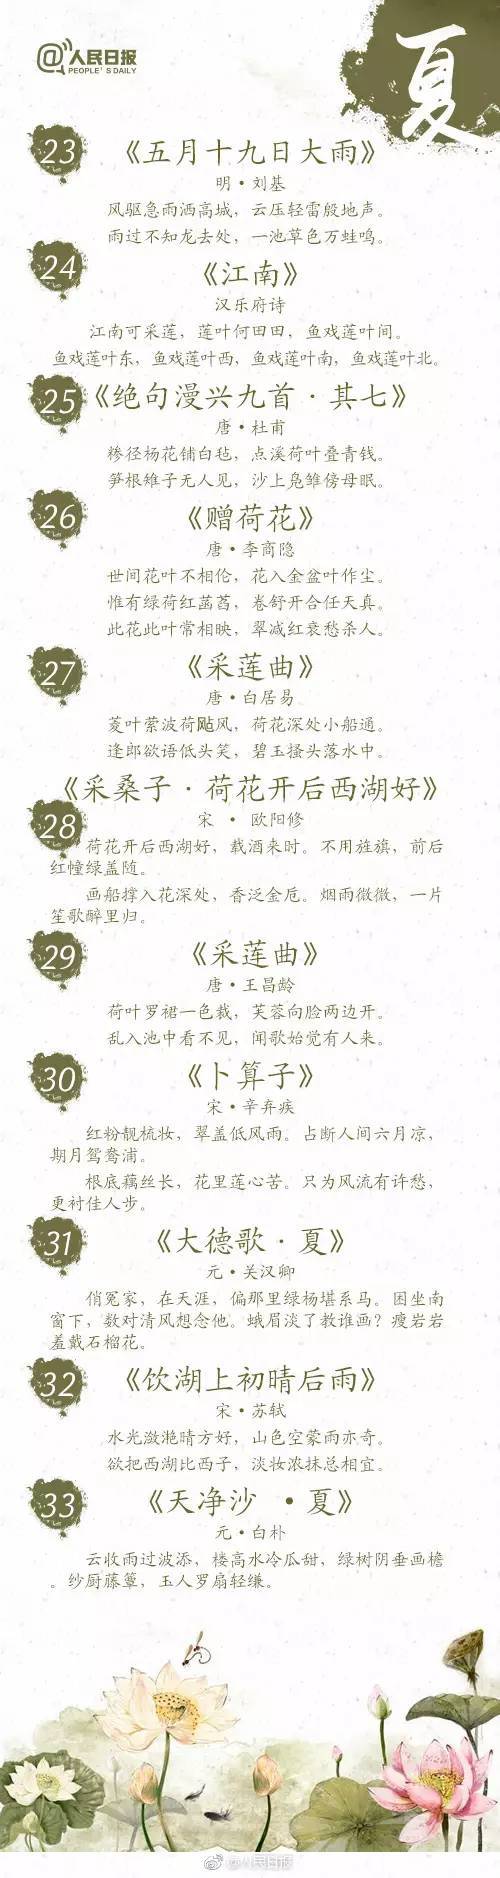 @人民日报
PEOPLE'S DAILY
夏
23
《五月十九日大雨》
明·刘基
风驱急雨洒高城，云压轻雷殷地声。
雨过不知龙去处，一池草色万蛙鸣。
24
《江南》
汉乐府诗
江南可采莲，莲叶何田田，鱼戏莲叶间。
鱼戏莲叶东，鱼戏莲叶西，鱼戏莲叶南，鱼戏莲叶北。
25
《绝句漫兴九首·其七》
唐·杜甫
糁径杨花铺白毡，点溪荷叶叠青钱。
笋根雉子无人见，沙上凫雏傍母眠。
26
《赠荷花》
唐·李商隐
世间花叶不相伦，花入金盆叶作尘。
惟有绿荷红菡萏，卷舒开合任天真。
此花此叶常相映，翠减红衰愁杀人。
27
《采莲曲》
唐·白居易
菱叶萦波荷飐风，荷花深处小船通。
逢郎欲语低头笑，碧玉搔头落水中。
《采桑子·荷花开后西湖好》
28
宋 · 欧阳修
荷花开后西湖好，载酒来时。不用旌旗，前后
红幢绿盖随。
画船撑入花深处，香泛金卮。烟雨微微，一片
笙歌醉里归。
29
《采莲曲》
唐·王昌龄
荷叶罗裙一色裁，芙蓉向脸两边开。
乱入池中看不见，闻歌始觉有人来。
30
《卜算子》
宋·辛弃疾
红粉靓梳妆，翠盖低风雨。占断人间六月凉，
期月鸳鸯浦。
根底藕丝长，花里莲心苦。只为风流有许愁，
更衬佳人步。
31
《大德歌·夏》
元·关汉卿
俏冤家，在天涯，偏那里绿杨堪系马。困坐南
窗下，数对清风想念他。蛾眉淡了教谁画？瘦岩岩
羞戴石榴花。
32
《饮湖上初晴后雨》
宋·苏轼
水光潋滟晴方好，山色空蒙雨亦奇。
欲把西湖比西子，淡妆浓抹总相宜。
33
《天净沙 ·夏》
元·白朴
云收雨过波添，楼高水冷瓜甜，绿树阴垂画檐
。纱厨藤簟，玉人罗扇轻缣。
@人民日报